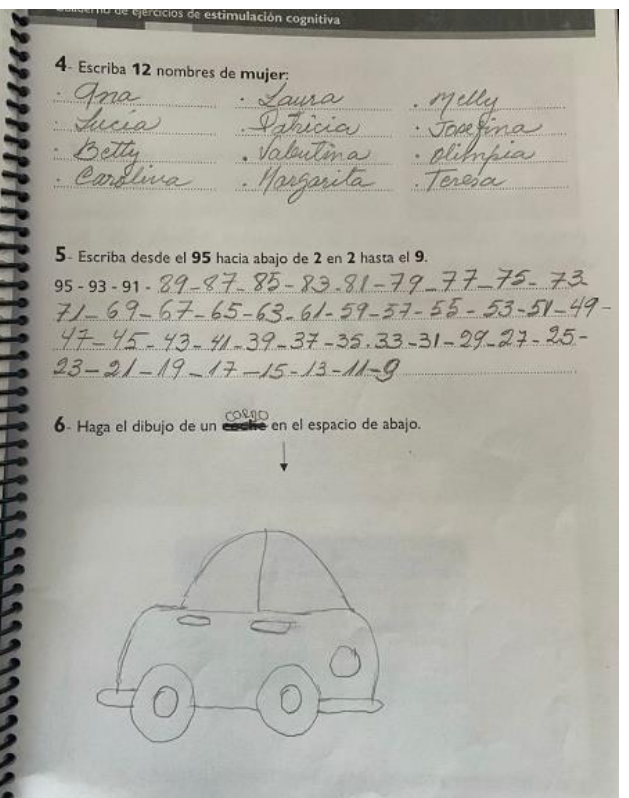 Cuaderno de ejercicios de estimulación cognitiva
4- Escriba 12 nombres de mujer:
. Ana . Laura . Melly
. Lucía . Patricia . Josefina
. Betty . Valentina . Olimpia
. Carolina . Margarita . Teresa
5- Escriba desde el 95 hacia abajo de 2 en 2 hasta el 9.
95 - 93 - 91 - 89-87-85-83-81-79-77-75-73
71-69-67-65-63-61-59-57-55-53-51-49-
47-45-43-41-39-37-35-33-31-29-27-25-
23-21-19-17-15-13-11-9
carro
6- Haga el dibujo de un coche en el espacio de abajo.